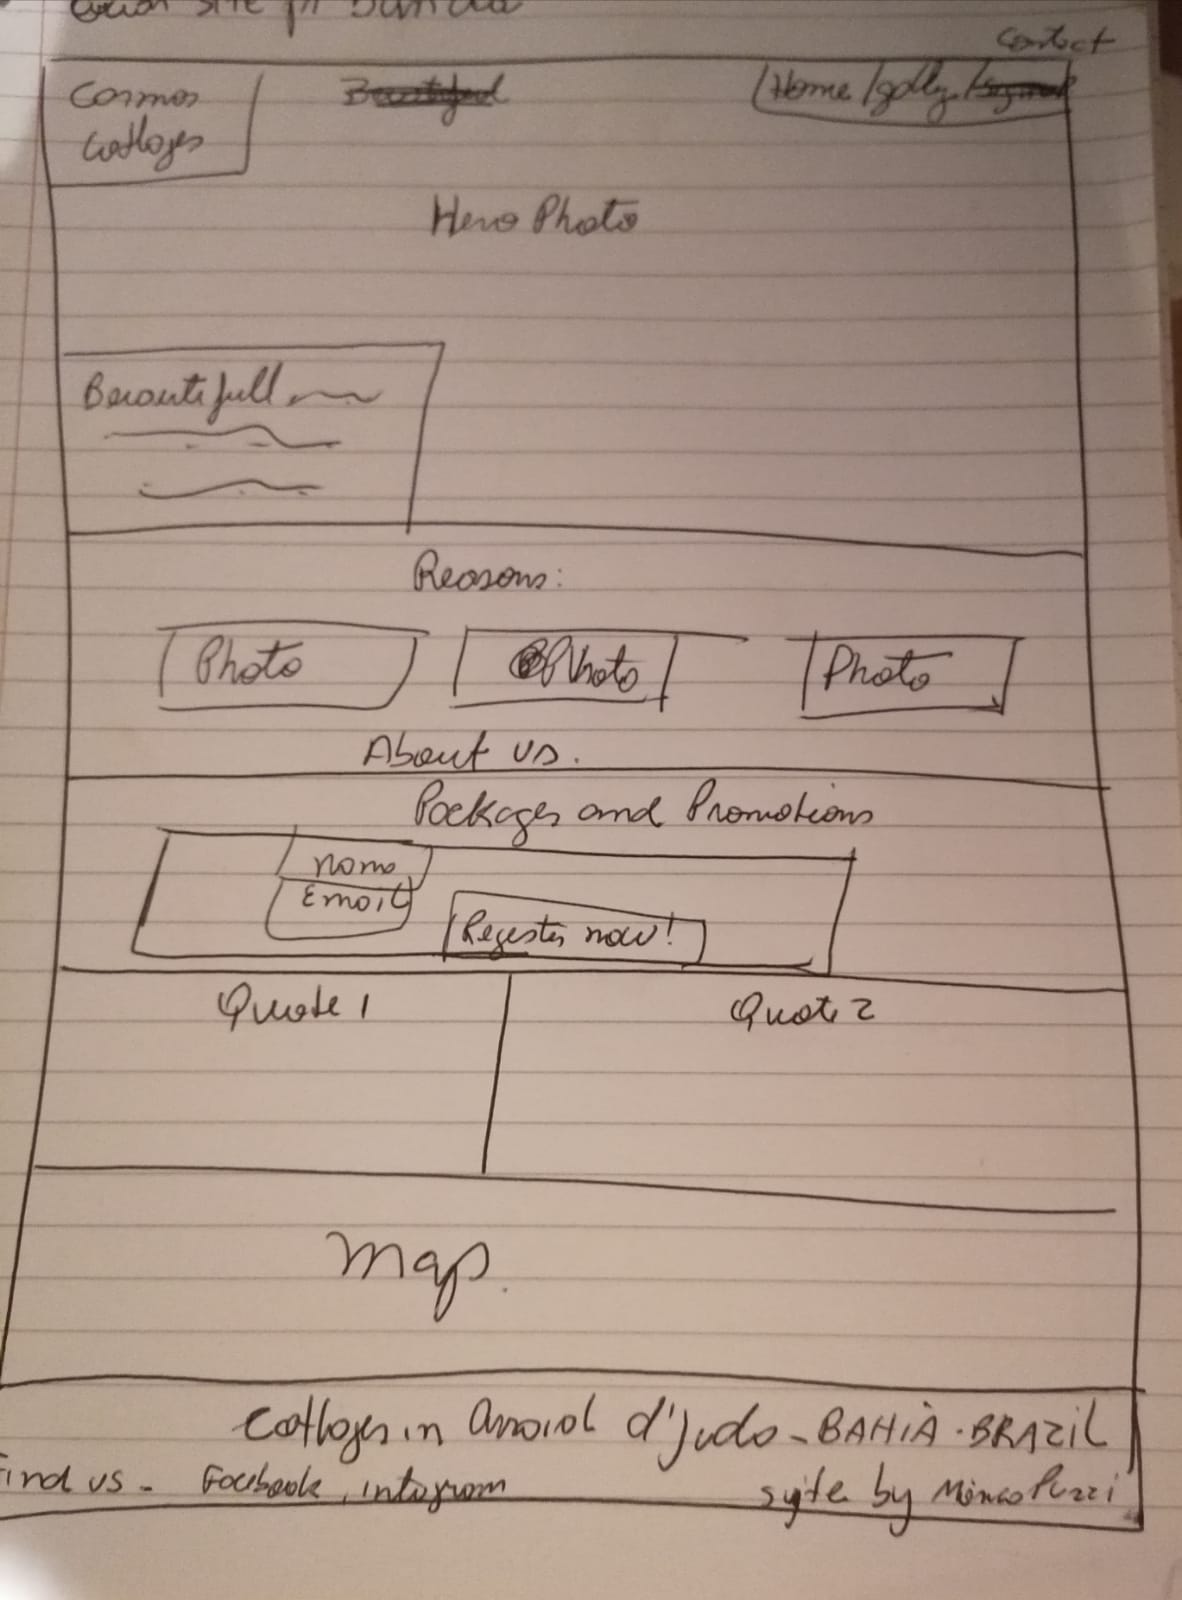 site
Contact
Cosmos
Cottages
Home / gally /
Hero Photo
Beroutifull
Reasons:
Photo Photo Photo
About us.
Packages and Promotions
name
Email
Register now!
Quote 1 Quote 2
Map.
Cottages in Arraial d'Juda - BAHIA - BRAZIL
Find us - Facebook, intagram
syte by